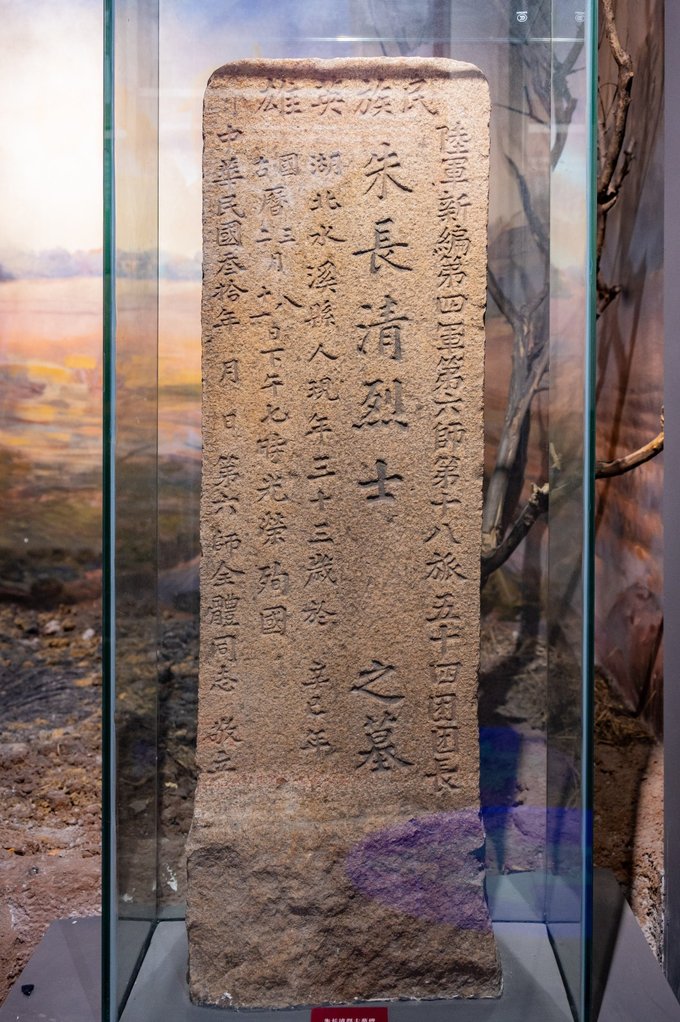 民族英雄
陸軍新編第四軍第六師第十八旅五十四团团長
朱長清烈士 之墓
湖北水溪縣人現年三十三歲於 辛巳年
國古曆三二月八十一日下午七時光榮殉國
中華民國叁拾年 月 日 第六師全體同志 敬立